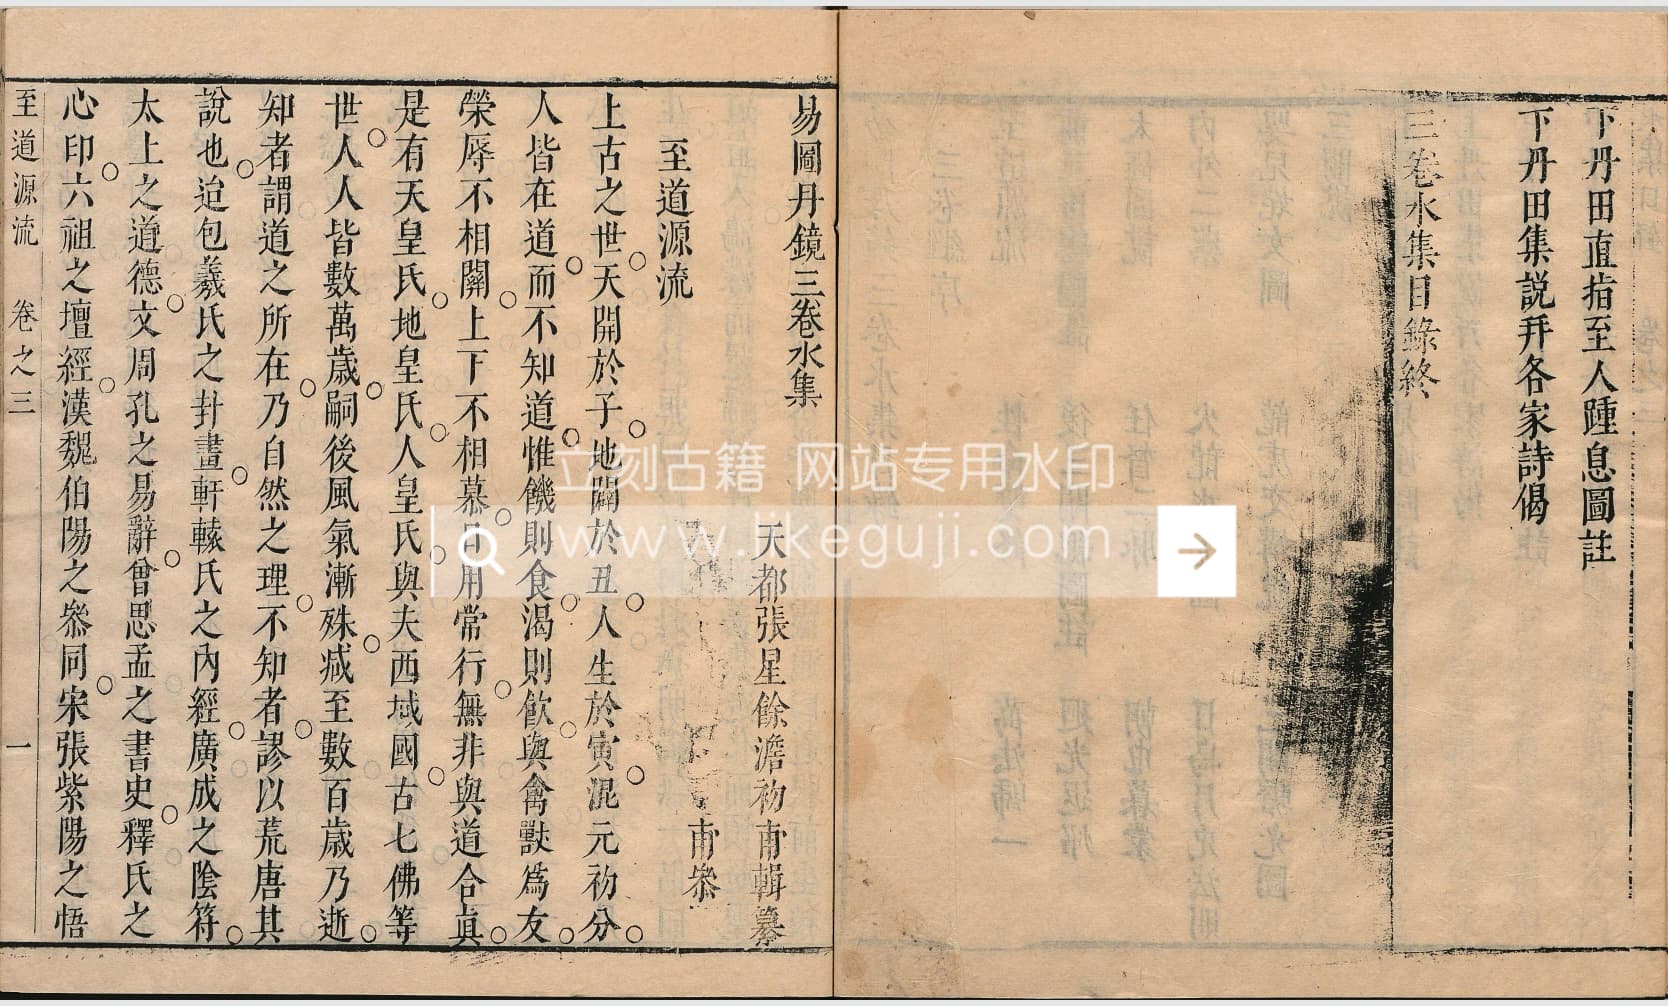 下丹田直指至人踵息圖註
下丹田集説幷各家詩偈
三卷水集目錄終
易圖丹鏡三卷水集
天都張星餘澹初甫輯纂
甫叅
至道源流
上古之世天開於子地闢於丑人生於寅混元初分
人皆在道而不知道惟饑則食渴則飲與禽獸爲友
榮辱不相關上下不相慕日用常行無非與道合眞
是有天皇氏地皇氏人皇氏與夫西域國古七佛等
世人人皆數萬歲嗣後風氣漸殊減至數百歲乃逝
知者謂道之所在乃自然之理不知者謬以荒唐其
說也迨包羲氏之卦畫軒轅氏之內經廣成之陰符
太上之道德文周孔之易辭曾思孟之書史釋氏之
心印六祖之壇經漢魏伯陽之叅同宋張紫陽之悟
至道源流 卷之三 一
立刻古籍 网站专用水印
www.likeguji.com